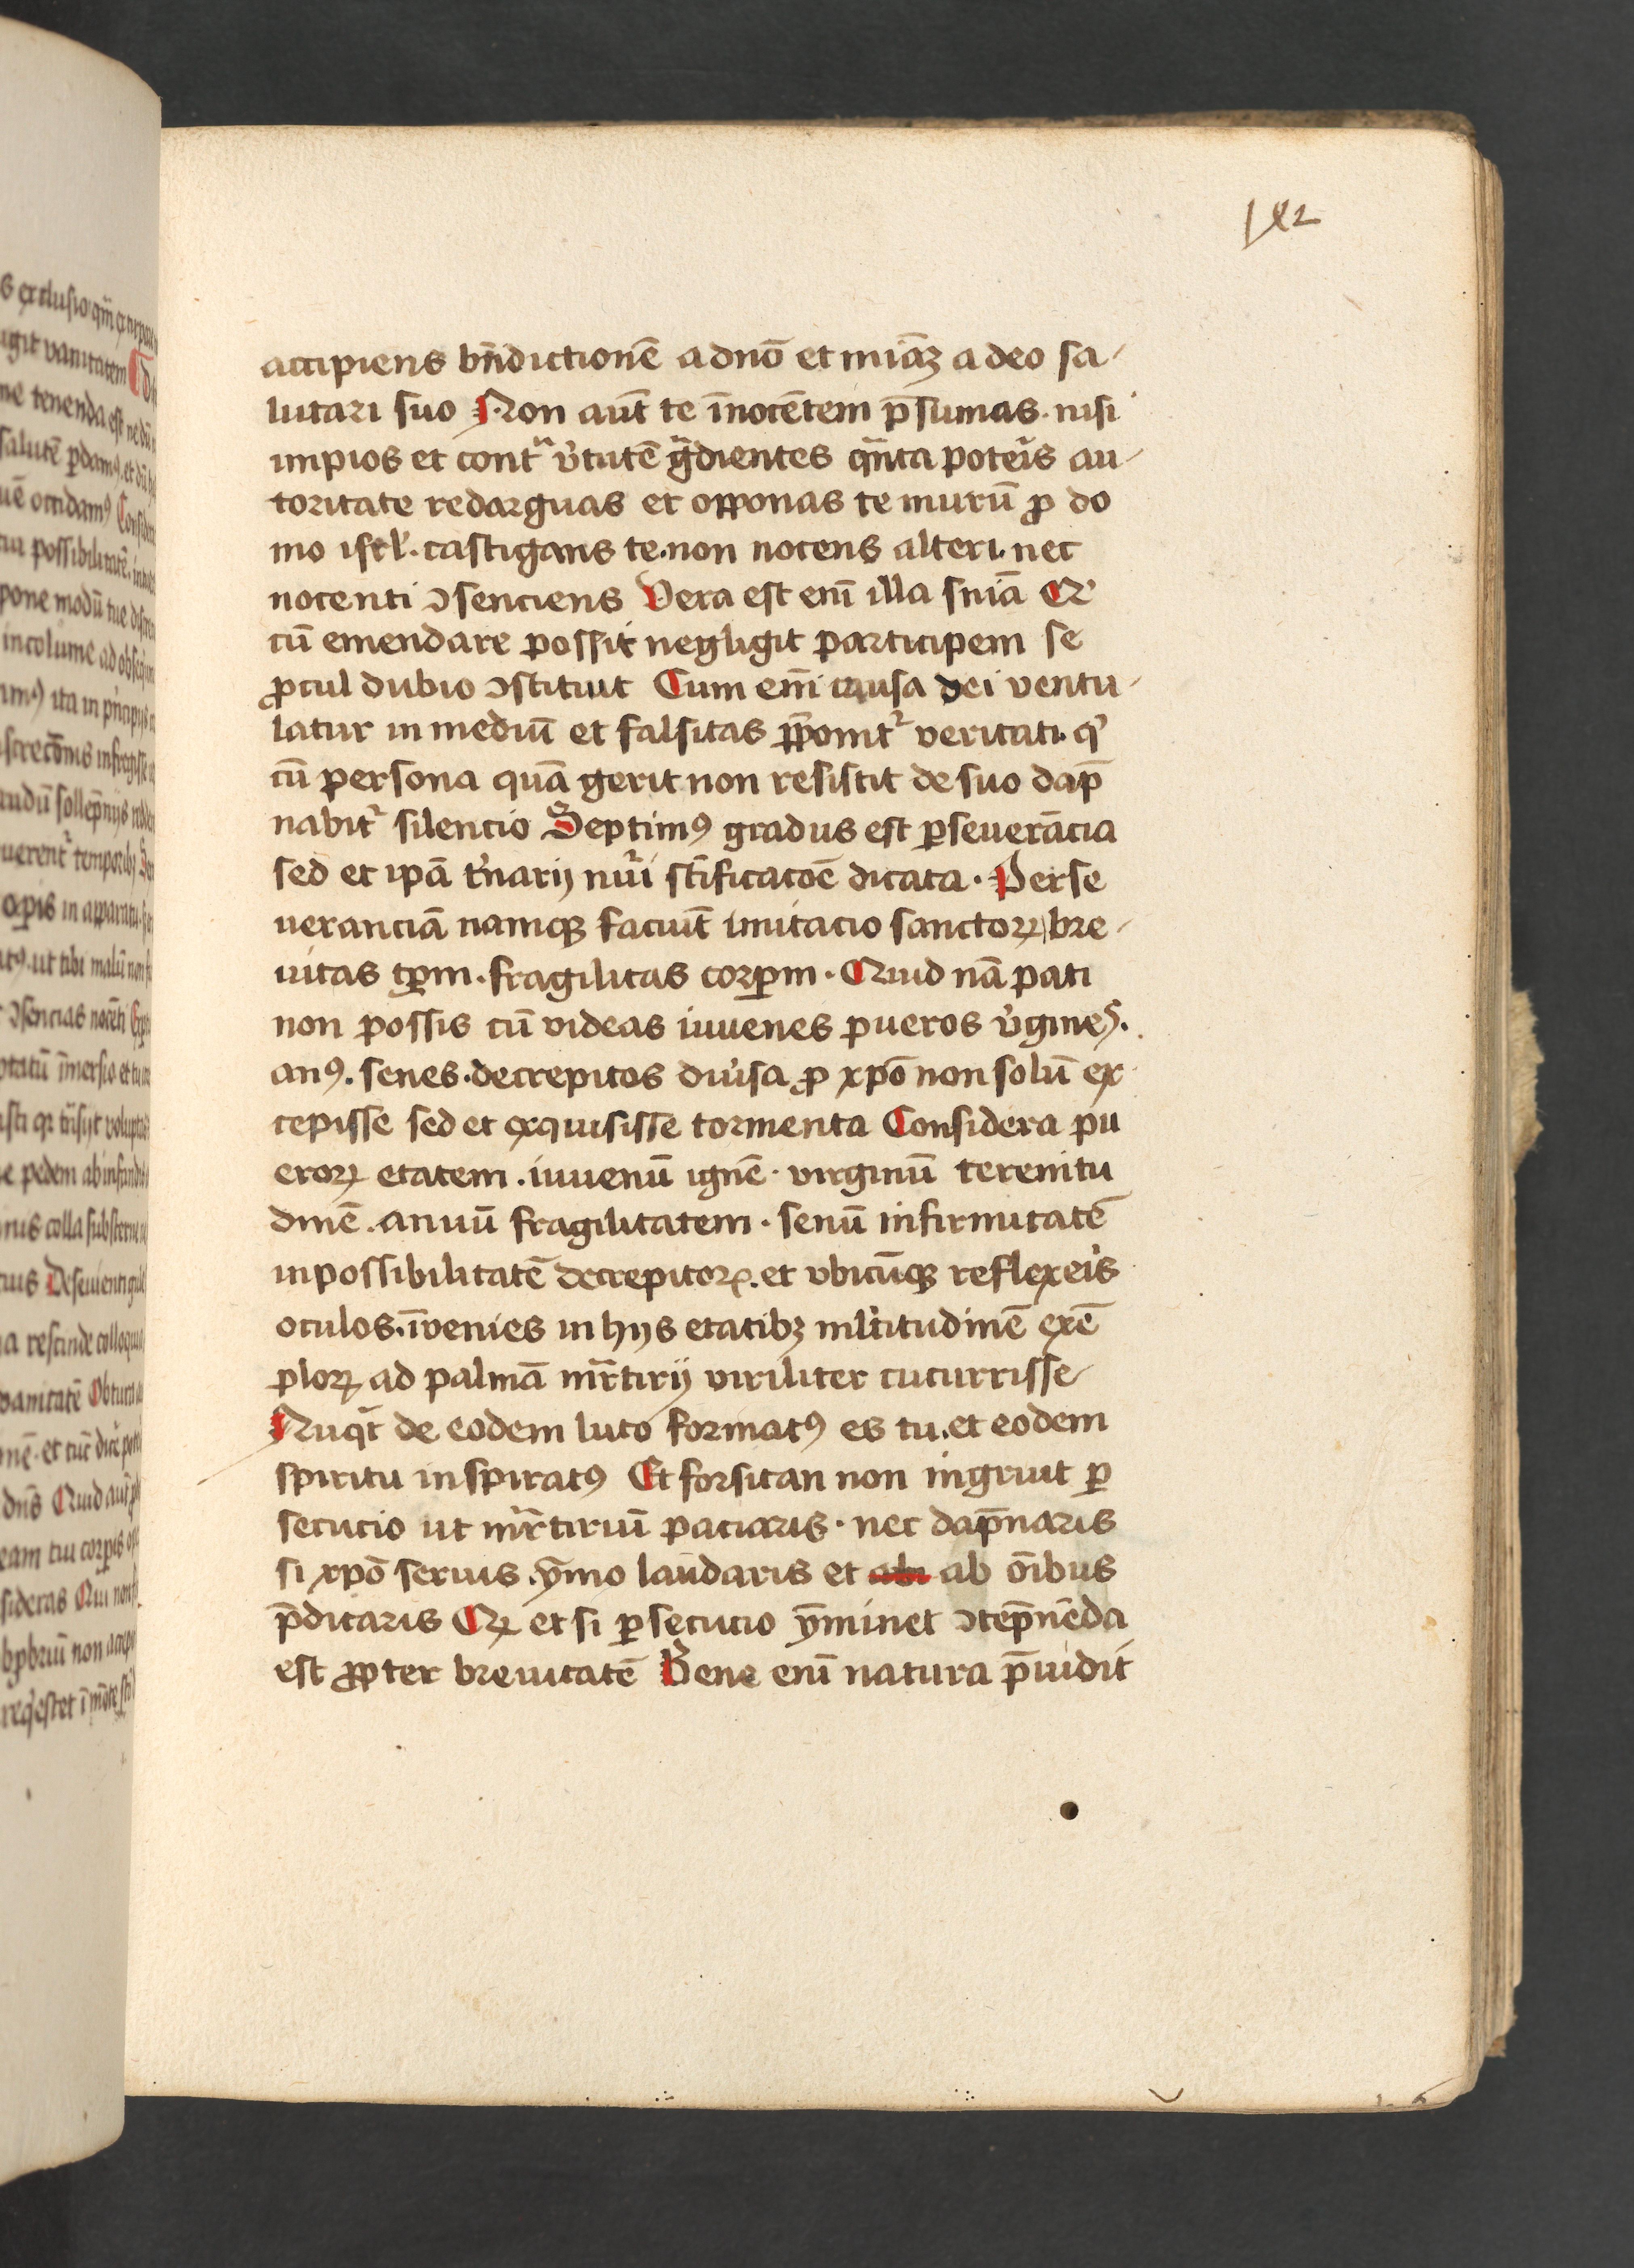 182
accipiens bn̄dictionē a dno᷒ et mīaꝫ a deo sa-
lutari suo Non aūt te īnocētem p̄sumas. nisi
impios et contᷓ v̓tutē gᷓdientes qᷓnta poteīs au-
toritate redarguas et opponas te murū ꝓ do
mo isrl̓. castigans te. non nocens alteri. nec
nocenti ꝯsenciens Vera est enī illa snīa Qꝛ
cū emendare possit negligit participem se
ꝓcul dubio ꝯstituit Cum enī causa dei ventu-
latur in mediū et falsitas p̄ponit᷑ veritati. qͥ
cū persona quā gerit non resistit de suo dap̄
nabit᷑ silencio Septimꝰ gradus est ꝑseuerācia
sed et ipā t̓narij nūi st̄ificacōe dicata. Perse
ueranciā namqꝫ faciūt imitacio sanctoꝝ bre-
uitas tꝑm. fragilitas corꝑm. Quid nā pati
non possis cū videas iuuenes pueros v̓gines.
anꝰ. senes. decrepitos diu̓sa ꝓ xpō non solū ex
cepisse sed et exquisisse tormenta Considera pu
eroꝝ etatem. iuuenū ignē. virginū tereni­tu
dinē. anuū fragilitatem. senū infirmitatē
inpossibilitatē decrepitoꝝ. et vbicūqꝫ reflexeis̓
oculos. īvenies in hijs etatibꝫ ml̓titudinē exē
ploꝝ ad palmā mr̄tirij viriliter cucurrisse
Nūqͥt de eodem luto formatꝰ es tu. et eodem
spiritu inspiratꝰ Et forsitan non ingruit ꝑ
secucio ut mr̄tiriū paciaris. nec dap̄naris
si xpō seruis. ȳmo laudaris et abi ab oībus
p̄dicaris Qꝝ et si ꝑsecucio ȳminet ꝯtep̄nēda
est ꝓpter breuitatē Bene enī natura p̄uidit